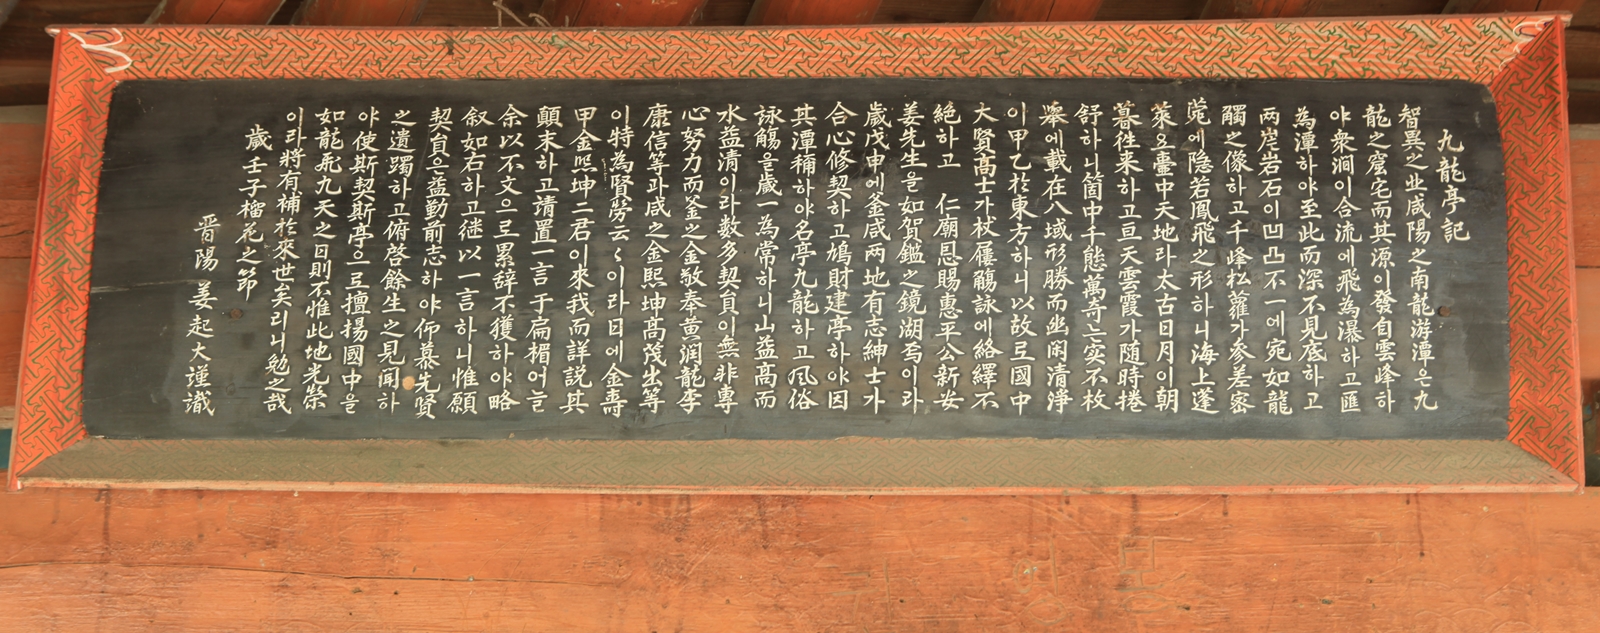 九龍亭記
智異之北咸陽之南龍游潭은九
龍之窟宅而其源이發自雲峰하
야衆澗이合流에飛為瀑하고匯
為潭하야至此而深不見底하고
両岸岩石이凹凸不一에宛如龍
觸之像하고千峰松蘿가参差密
蔸에隐若鳳飛之形하니海上蓬
萊요臺中天地라太古日月이朝
暮徃来하고亘天雲霞가随時捲
舒하니箇中千態萬奇는实不枚
擧에載在八域形勝而幽闲清淨
이甲乙於東方하니以故로國中
大賢髙士가杖屨觴詠에絡繹不
絶하고 仁廟恩賜惠平公新安
姜先生을如賀鑑之鏡湖焉이라
歲戊申에釜咸两地有志紳士가
合心修契하고鳩財建亭하야因
其潭稱하야名亭九龍하고风俗
詠觴을歲一為常하니山益髙而
水益清이라数多契員이無非專
心努力而釜之金敬奉黄润龍李
康信等과咸之金熙坤髙茂出等
이特為賢勞云々이라日에金壽
甲金熙坤二君이來我而詳説其
顛末하고请置一言于扁楣어늘
余以不文으로累辞不獲하야略
叙如右하고継以一言하니惟願
契員은益勤前志하야仰慕先賢
之遺躅하고俯啓餘生之見聞하
야使斯契斯亭으로擅揚國中을
如龍飛九天之日則不惟此地光榮
이라將有補於來世矣리니勉之哉
歲壬子榴花之節
晋陽 姜起大謹識